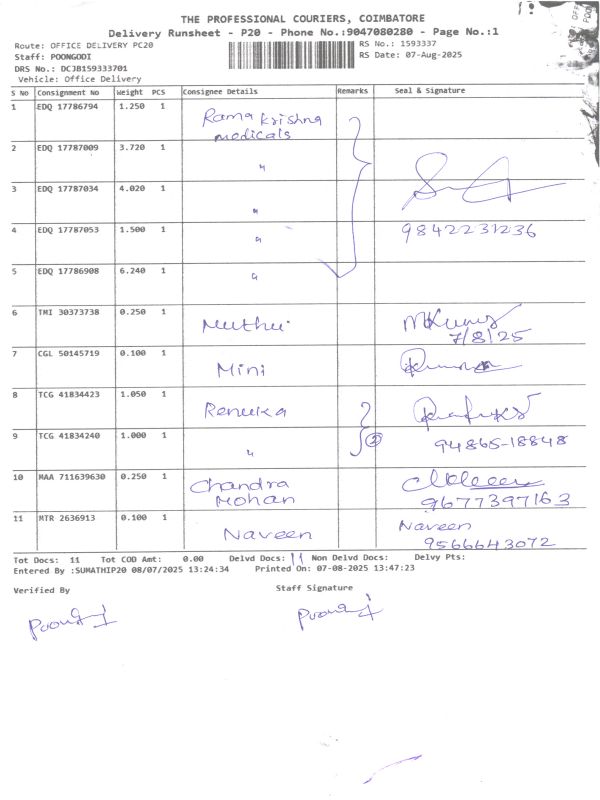 THE PROFESSIONAL COURIERS, COIMBATORE
Delivery Runsheet - P20 - Phone No.:9047080280 - Page No.:1
Route: OFFICE DELIVERY PC20
RS No.: 1593337
Staff: POONGODI
RS Date: 07-Aug-2025
DRS No.: DCJB159333701
Vehicle: Office Delivery
S No Consignment No Weight PCS Consignee Details Remarks Seal & Signature
1 EDQ 17786794 1.250 1 Rama Krishna
medicals
2 EDQ 17787009 3.720 1 "
3 EDQ 17787034 4.020 1 "
4 EDQ 17787053 1.500 1 " 9842231236
5 EDQ 17786908 6.240 1 "
6 TMI 30373738 0.250 1 Muthu
7/8/25
7 CGL 50145719 0.100 1 Mini
8 TCG 41834423 1.050 1 Renuka
9 TCG 41834240 1.000 1 " 2 94865-18848
10 MAA 711639630 0.250 1 Chandra
Mohan 9677397163
11 MTR 2636913 0.100 1 Naveen Naveen
9566643072
Tot Docs: 11 Tot COD Amt: 0.00 Delvd Docs: 11 Non Delvd Docs: Delvy Pts:
Entered By :SUMATHIP20 08/07/2025 13:24:34 Printed On: 07-08-2025 13:47:23
Verified By Staff Signature